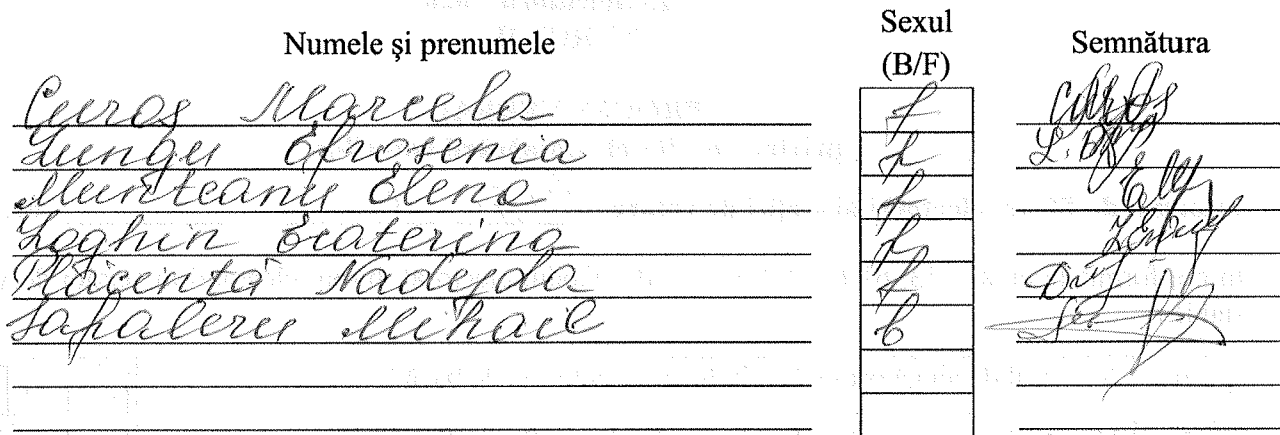 Numele și prenumele Sexul (B/F) Semnătura
Curos Marcela f
Lungu Efrosenia f
Munteanu Elena f
Loghin Ecaterina f
Plăcintă Nadejda f
Mihail b